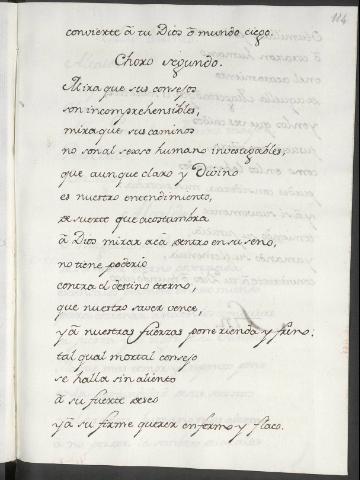 114
convierte â tu Dios ô mundo ciego.
Choro segundo.
Mira que sus consejos
son incomprehensibles,
mira que sus caminos
no son al sexso humano investigables,
que aunque claro y Divino
es nuestro entendimiento,
de suerte que acostumbra
â Dios mirar acâ dentro en su seno,
no tiene poderio
contra el destino eterno,
que nuestro saver vence,
yâ nuestras fuerzas pone rienda y freno:
tal qual mortal consejo
se halla sin aliento
â su fuerte deseo
yâ su firme querer enfermo y flaco.